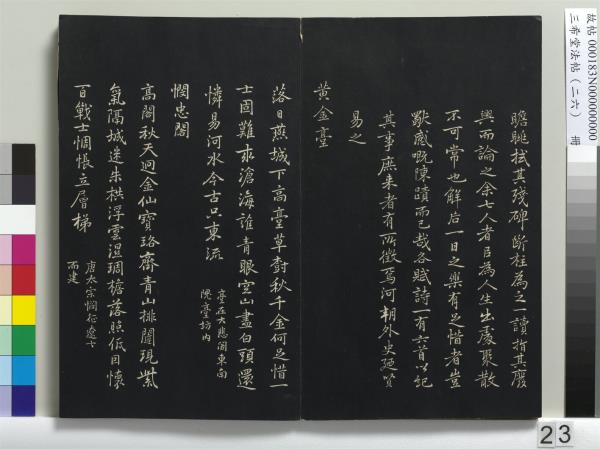 瞻眺拭其殘碑斷柱為之一讀指其廢
興而論之余七人者且為人生出處聚散
不可常也解后一日之樂有足惜者豈
獨感慨陳蹟而已哉各賦詩一有六首以紀
其事庶來者有所徵焉河朔外史迺賢
易之
黃金臺
落日燕城下高臺草樹秋千金何足惜一
士固難求滄海誰青眼空山盡白頭還
憐易河水今古只東流
臺在大悲閣東南
隗臺坊內
憫忠閣
高閣秋天迥金仙寶珞齋青山排闥現紫
氣隔城迷朱栱浮雲濕琱檐落照低因懷
百戰士惆悵立層梯
唐太宗憫征遼士
而建
故帖 000183N000000000
三希堂法帖（二六） 冊
23